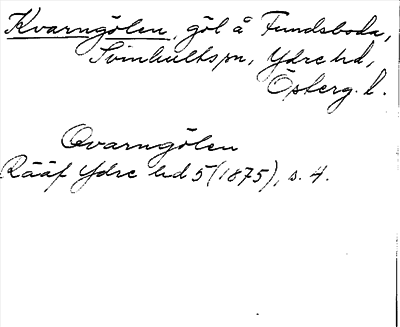 Kvarngölen, göl å Fundsboda,
Svinhultspn, Ydre hd,
Österg. l.
Qvarngölen
Rääf Ydre hd 5 (1875), s. 4.